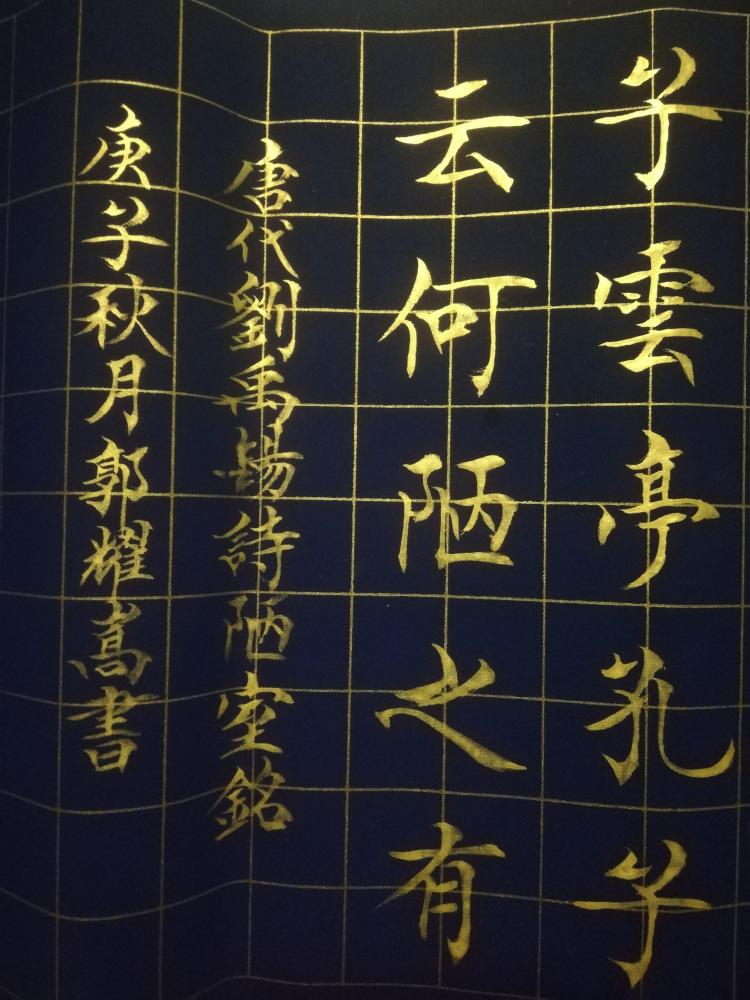 子雲亭孔子
云何陋之有
唐代劉禹锡詩陋室銘
庚子秋月郭耀嵩書